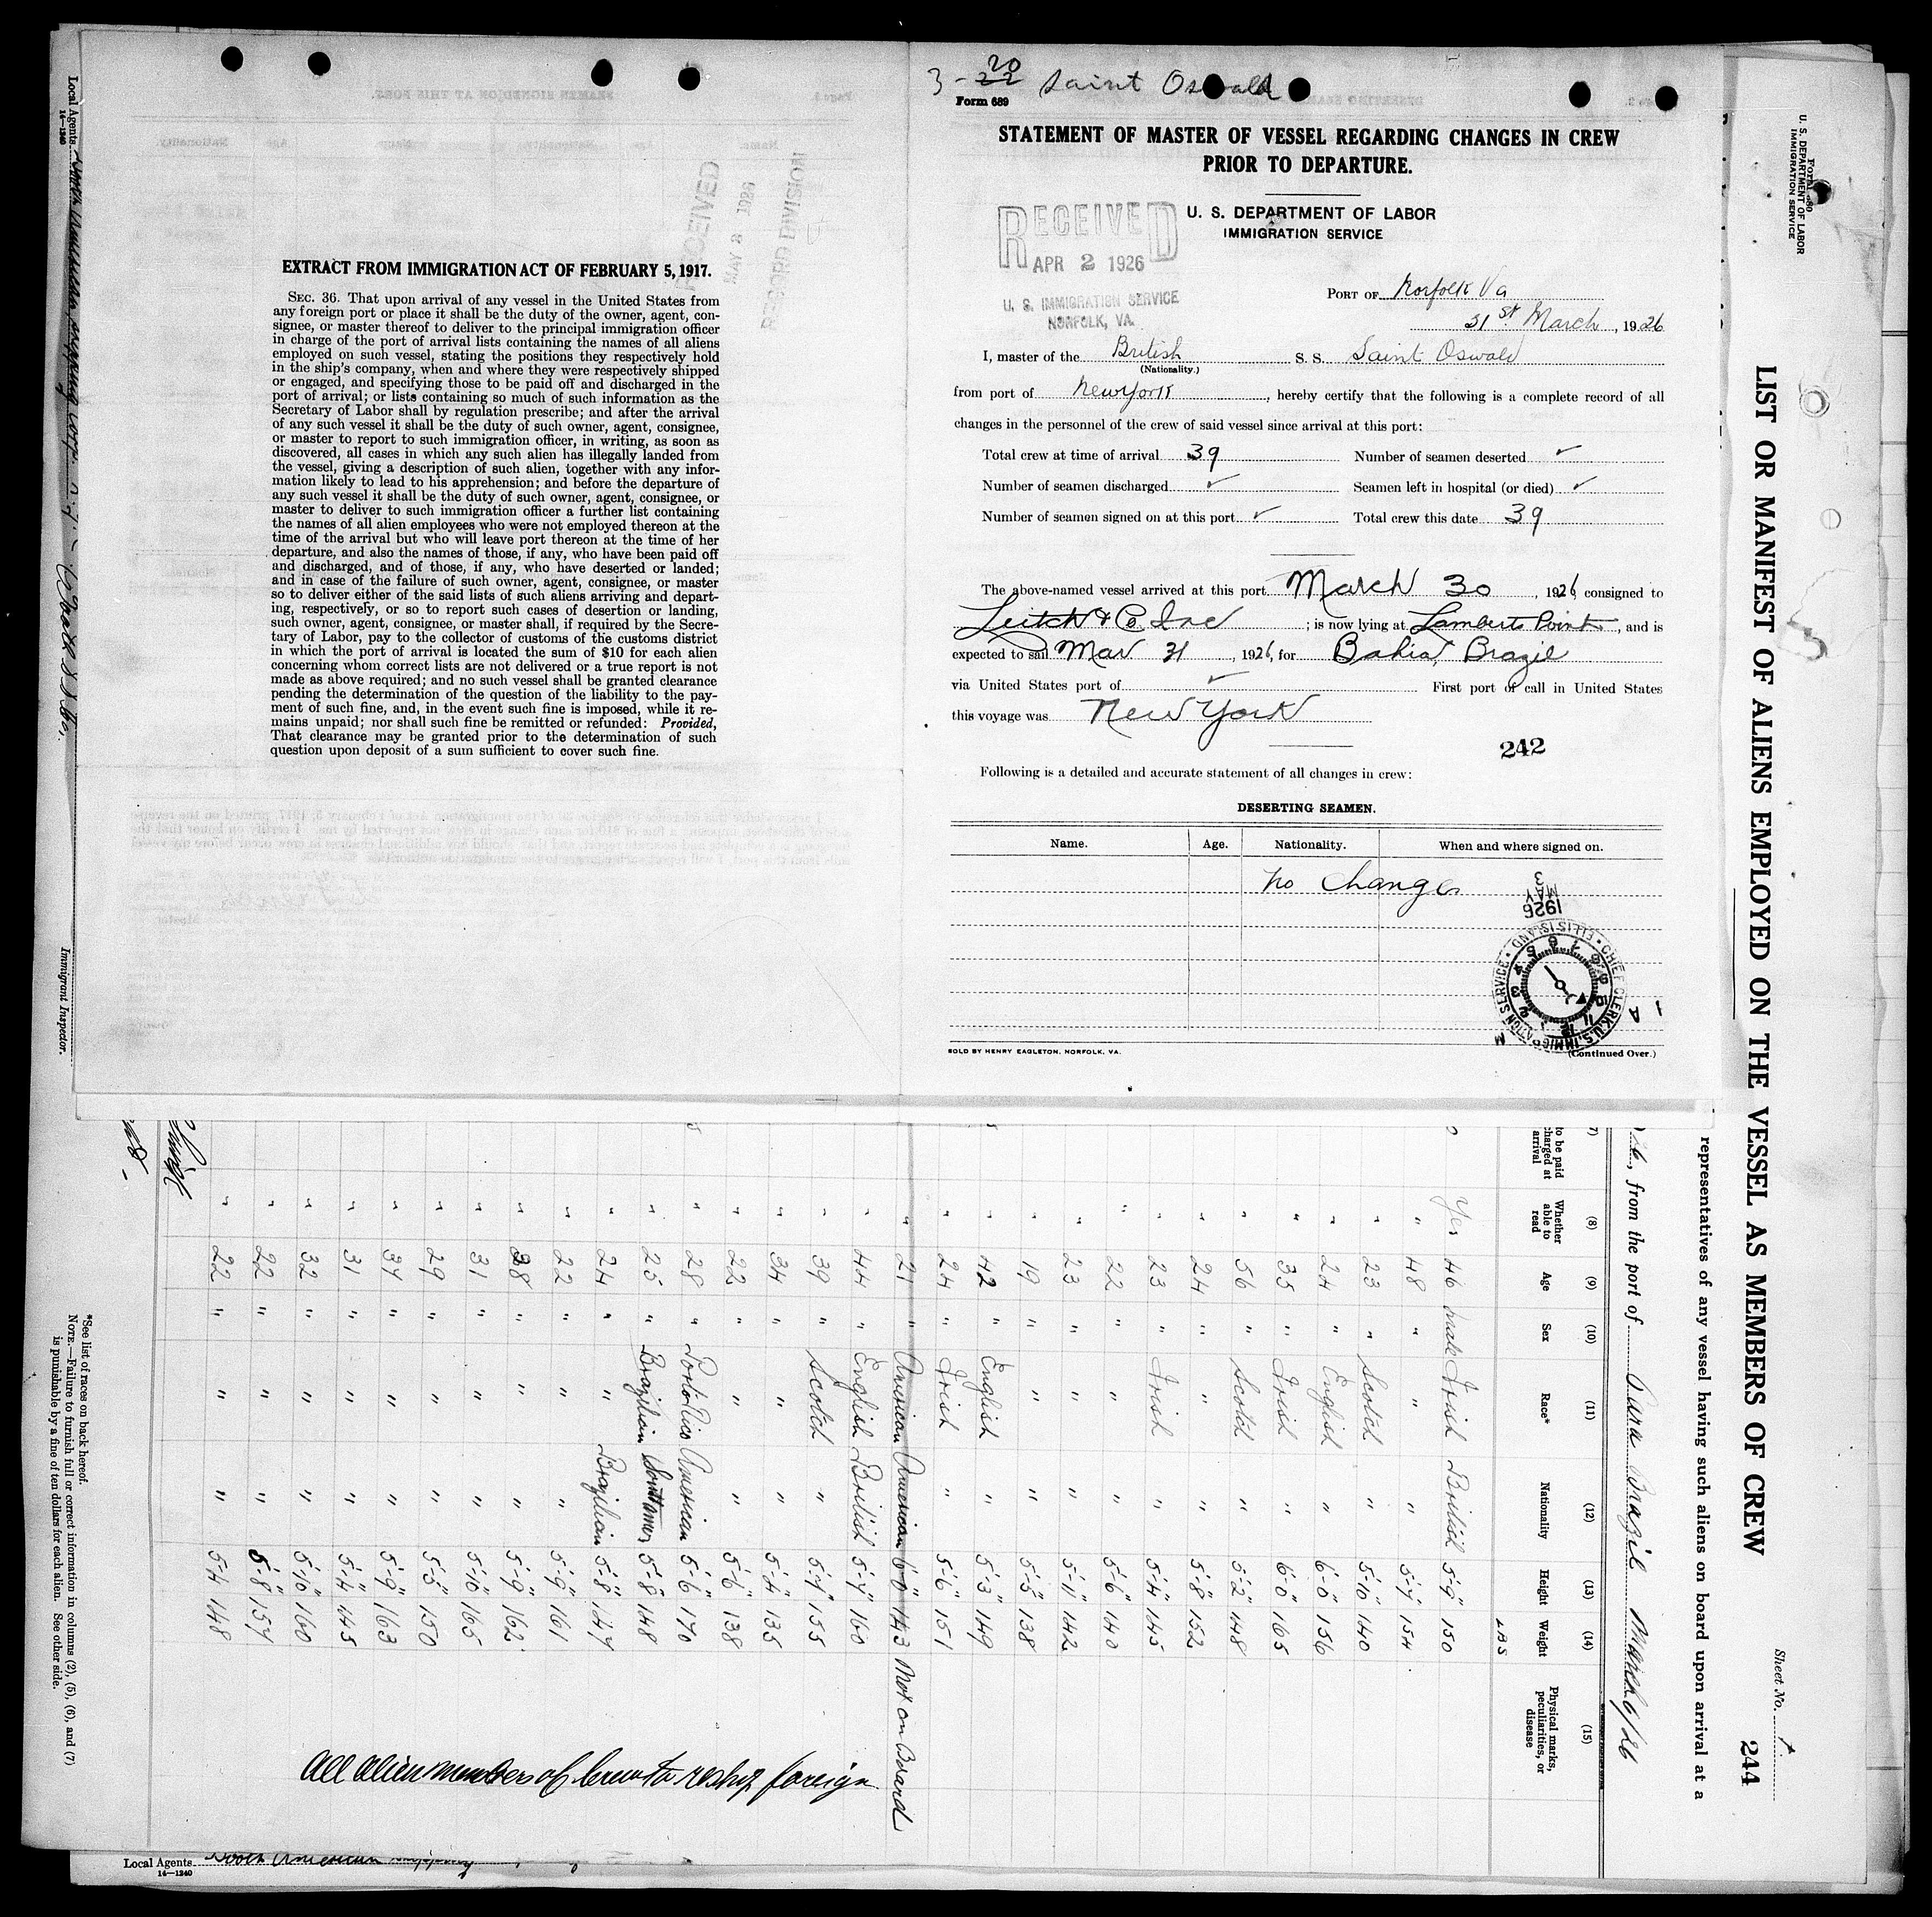 3 - 22 20 Saint Oswald
Form 689
STATEMENT OF MASTER OF VESSEL REGARDING CHANGES IN CREW
PRIOR TO DEPARTURE.
U. S. DEPARTMENT OF LABOR
IMMIGRATION SERVICE
RECEIVED
APR 2 1926
U. S. IMMIGRATION SERVICE
NORFOLK, VA.
PORT OF Norfolk Va
31st March, 1926
I, master of the British S. S. Saint Oswald
(Nationality.)
from port of New York, hereby certify that the following is a complete record of all
changes in the personnel of the crew of said vessel since arrival at this port:
Total crew at time of arrival 39 Number of seamen deserted ✓
Number of seamen discharged ✓ Seamen left in hospital (or died) ✓
Number of seamen signed on at this port ✓ Total crew this date 39
The above-named vessel arrived at this port March 30, 1926, consigned to
Leitch & Co. Inc; is now lying at Lamberts Point, and is
expected to sail Mar 31, 1926, for Bahia, Brazil
via United States port of ✓ First port of call in United States
this voyage was New York
242
Following is a detailed and accurate statement of all changes in crew:
DESERTING SEAMEN.
Name. Age. Nationality. When and where signed on.
No Changes
1926
MAY
3
CHIEF CLERK U.S. IMMIGRATION SERVICE • ELLIS ISLAND •
SOLD BY HENRY EAGLETON, NORFOLK, VA.
(Continued Over.)
RECEIVED
MAY 3 1926
RECORD DIVISION
EXTRACT FROM IMMIGRATION ACT OF FEBRUARY 5, 1917.
SEC. 36. That upon arrival of any vessel in the United States from
any foreign port or place it shall be the duty of the owner, agent, con-
signee, or master thereof to deliver to the principal immigration officer
in charge of the port of arrival lists containing the names of all aliens
employed on such vessel, stating the positions they respectively hold
in the ship's company, when and where they were respectively shipped
or engaged, and specifying those to be paid off and discharged in the
port of arrival; or lists containing so much of such information as the
Secretary of Labor shall by regulation prescribe; and after the arrival
of any such vessel it shall be the duty of such owner, agent, consignee,
or master to report to such immigration officer, in writing, as soon as
discovered, all cases in which any such alien has illegally landed from
the vessel, giving a description of such alien, together with any infor-
mation likely to lead to his apprehension; and before the departure of
any such vessel it shall be the duty of such owner, agent, consignee, or
master to deliver to such immigration officer a further list containing
the names of all alien employees who were not employed thereon at the
time of the arrival but who will leave port thereon at the time of her
departure, and also the names of those, if any, who have been paid off
and discharged, and of those, if any, who have deserted or landed;
and in case of the failure of such owner, agent, consignee, or master
so to deliver either of the said lists of such aliens arriving and depart-
ing, respectively, or so to report such cases of desertion or landing,
such owner, agent, consignee, or master shall, if required by the Secre-
tary of Labor, pay to the collector of customs of the customs district
in which the port of arrival is located the sum of $10 for each alien
concerning whom correct lists are not delivered or a true report is not
made as above required; and no such vessel shall be granted clearance
pending the determination of the question of the liability to the pay-
ment of such fine, and, in the event such fine is imposed, while it re-
mains unpaid; nor shall such fine be remitted or refunded: Provided,
That clearance may be granted prior to the determination of such
question upon deposit of a sum sufficient to cover such fine.
Form 680
U. S. DEPARTMENT OF LABOR
IMMIGRATION SERVICE
LIST OR MANIFEST OF ALIENS EMPLOYED ON THE VESSEL AS MEMBERS OF CREW
Sheet No. 1
244
representatives of any vessel having such aliens on board upon arrival at a
26, from the port of Para Brazil March 6/26
(8) (9) (10) (11) (12) (13) (14) (15)
to be paid charged at arrival Whether able to read Age Sex Race* Nationality Height Weight Physical marks, peculiarities, or disease
LBS
Yes 46 male Irish British 5-9" 150
" 48 " " " 5-7" 154
" 23 " Scotch " 5-10" 140
" 24 " English " 6-0" 156
" 35 " Irish " 6-0" 165
" 56 " Scotch " 5-2" 148
" 24 " " " 5-8" 152
" 23 " Irish " 5-4" 145
" 22 " " " 5-6" 140
" 23 " " " 5-11" 142
" 19 " " " 5-5" 138
" 42 " English " 5-3" 149
" 24 " Irish " 5-6" 151
" 21 " American American 6-0" 143 Not on Board
" 44 " English British 5-7" 160
" 39 " Scotch " 5-7" 155
" 34 " " " 5-4" 135
" 22 " " " 5-6" 138
" 28 " Porto Rico American 5-6" 170
" 25 " Brazilian 5-8" 148
" 24 " " Brazilian 5-8" 147
" 22 " " " 5-9" 161
" 38 " " " 5-9" 162
" 31 " " " 5-10" 165
" 29 " " " 5-5" 150
" 37 " " " 5-9" 163
" 31 " " " 5-4" 145
" 32 " " " 5-10" 160
" 22 " " " 5-8" 157
" 22 " " " 5-4" 148
All alien members of crew to reship foreign
*See list of races on back hereof.
NOTE.—Failure to furnish full or correct information in columns (2), (5), (6), and (7)
is punishable by a fine of ten dollars for each alien. See other side.
Local Agents
14—1240
Immigrant Inspector.
Local Agents South American Shipping
14—1240